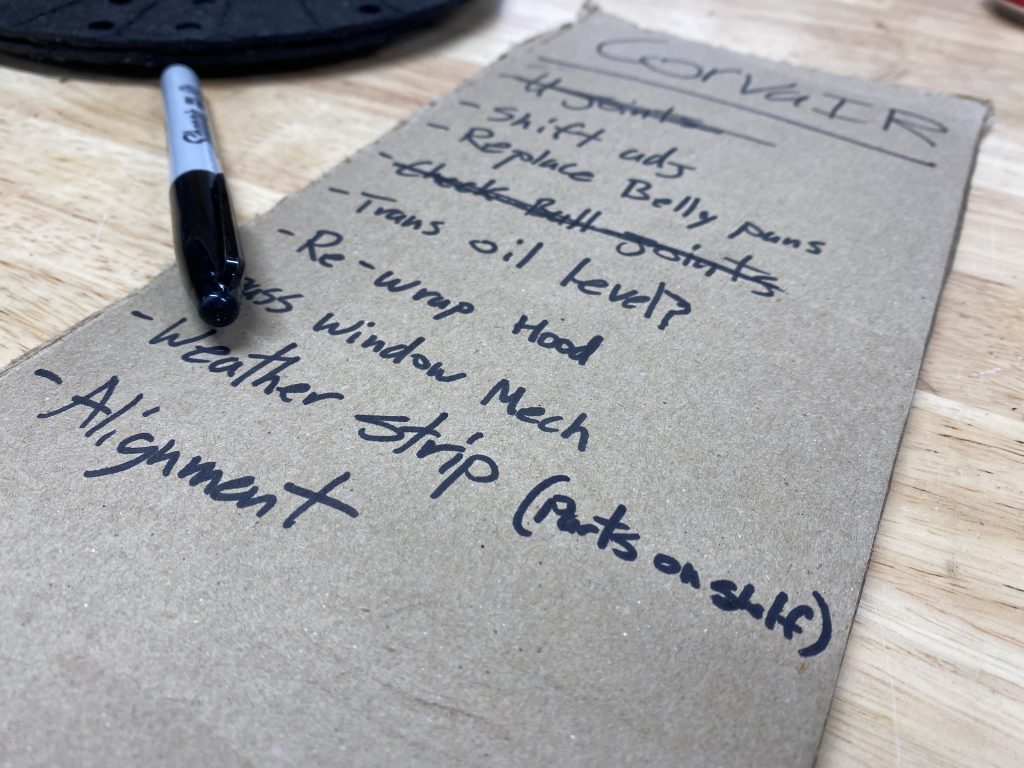 CorvaIR
- U joints
- Shift adj
- Replace Belly pans
- Check Ball joints
- Trans oil level?
- Re-wrap Hood
ass window Mech
- Weather strip (parts on shlf)
- Alignment
Sharpie